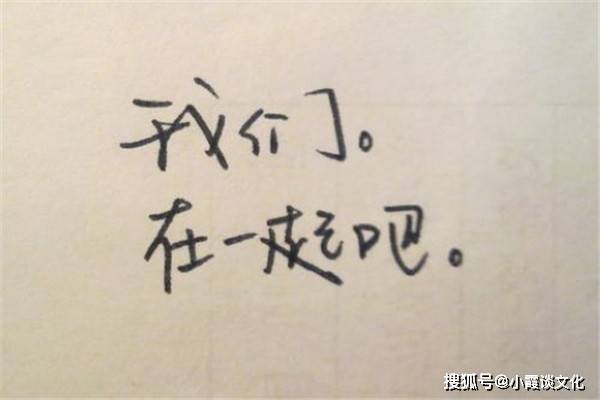 我们。
在一起吧。
搜狐号@小霞谈文化